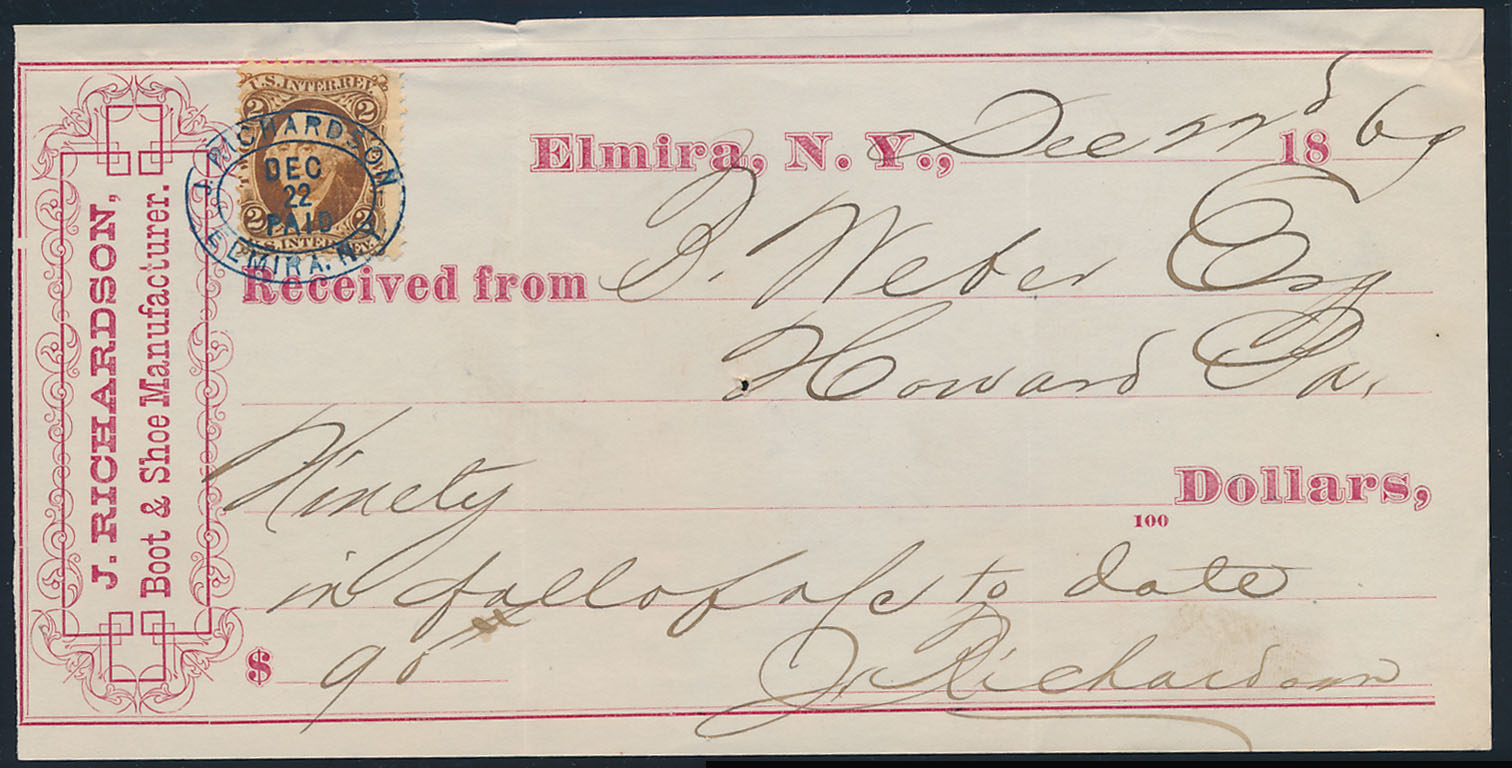 J. RICHARDSON,
Boot & Shoe Manufacturer.
U.S. INTER. REV.
2 2
J. RICHARDSON
DEC
22
PAID
ELMIRA. N.Y.
2 2
U.S. INTER. REV.
Elmira, N. Y., Dec 22d 1869
Received from D. Weber Esq
Howard Pa.
Ninety 100 Dollars,
in full of a/c to date
$ 90
J. Richardson